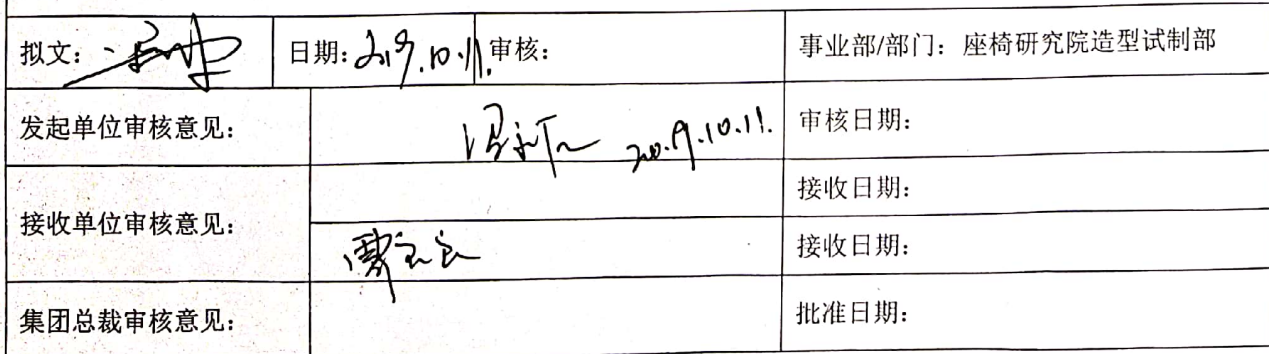 拟文： 日期：2019.10.11. 审核： 事业部/部门：座椅研究院造型试制部
发起单位审核意见： 2019.10.11. 审核日期：
接收日期：
接收单位审核意见：
接收日期：
集团总裁审核意见： 批准日期：